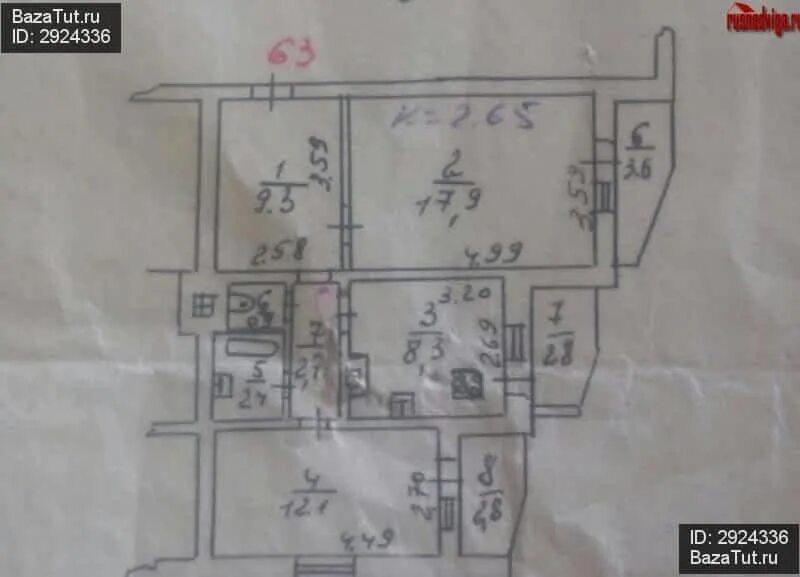 BazaTut.ru
ID: 2924336
ruanedviga.ru
63
к=2.65
1
9.3
3.59
2.58
2
17.9
3.59
4.99
6
3.6
3.20
3
8.3
2.69
7
2.8
7
2.7
6
5
2.4
4
12.1
2.70
4.49
8
2.8
ID: 2924336
BazaTut.ru